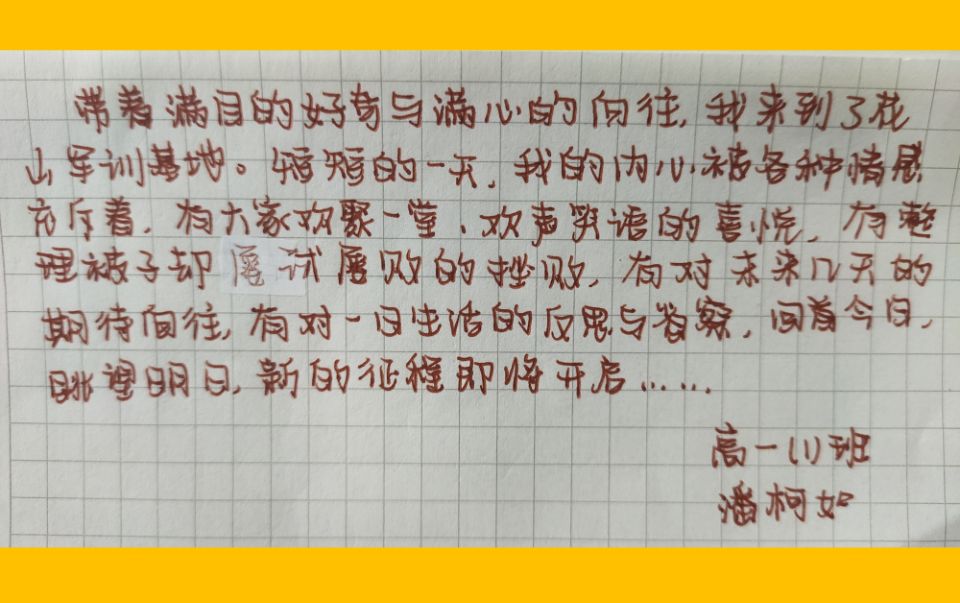 带着满目的好奇与满心的向往,我来到了花
山军训基地。短短的一天,我的内心被各种情感
充斥着,有大家欢聚一堂、欢声笑语的喜悦,有整
理被子却屡试屡败的挫败,有对未来几天的
期待向往,有对一日生活的反思与省察,回首今日,
眺望明日,新的征程即将开启……
高一(1)班
潘柯如